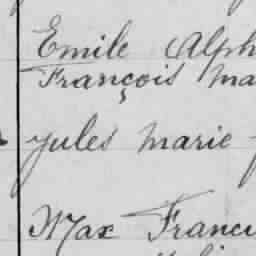 Emile Alph
François Ma
Jules Marie
Max Franci